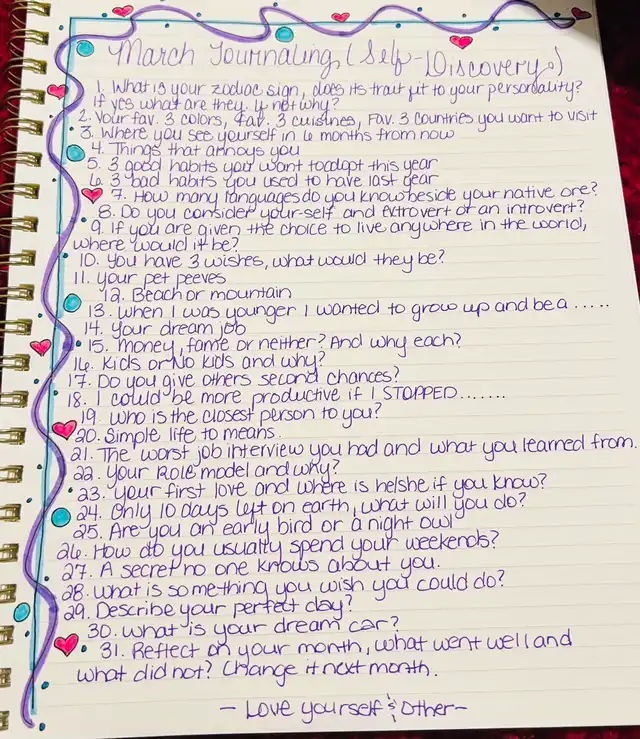 March Journaling (Self-Discovery)
1. What is your zodiac sign, does its trait fit to your personality?
If yes what are they. If not why?
2. Your fav. 3 colors, fav. 3 cuisines, Fav. 3 Countries you want to visit
3. Where you see yourself in 6 months from now
4. Things that annoys you
5. 3 good habits you want to adopt this year
6. 3 bad habits you used to have last year
7. How many languages do you know beside your native one?
8. Do you consider your-self and extrovert or an introvert?
9. If you are given the choice to live anywhere in the world,
where would it be?
10. You have 3 wishes, what would they be?
11. Your pet peeves
12. Beach or mountain
13. When I was younger I wanted to grow up and be a .....
14. Your dream job
15. Money, fame or neither? And why each?
16. Kids or No kids and why?
17. Do you give others second chances?
18. I could be more productive if I STOPPED.......
19. Who is the closest person to you?
20. Simple life to means.
21. The worst job interview you had and what you learned from.
22. Your Role model and why?
23. Your first love and where is he/she if you know?
24. Only 10 days left on earth, what will you do?
25. Are you an early bird or a night owl
26. How do you usually spend your weekends?
27. A secret no one knows about you.
28. What is something you wish you could do?
29. Describe your perfect day?
30. What is your dream car?
31. Reflect on your month, what went well and
what did not? Change it next month.
- Love yourself & Other -